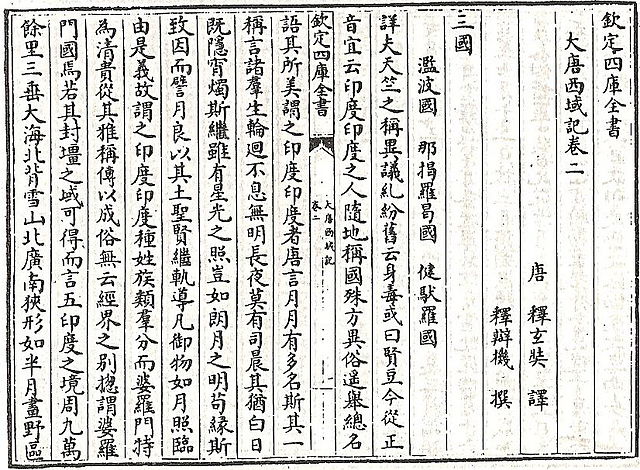 欽定四庫全書
大唐西域記卷二
唐 釋玄奘 譯
釋辯機 撰
三國
濫波國 那揭羅曷國 健馱羅國
詳夫天竺之稱異議糺紛舊云身毒或曰賢豆今從正
音宜云印度印度之人隨地稱國殊方異俗遥舉總名
欽定四庫全書
大唐西域記
卷二
語其所美謂之印度印度者唐言月月有多名斯其一
稱言諸羣生輪廻不息無明長夜莫有司晨其猶白日
既隱宵燭斯繼雖有星光之照豈如朗月之明茍緣斯
致因而譬月良以其土聖賢繼軌導凡御物如月照臨
由是義故謂之印度印度種姓族類羣分而婆羅門特
為清貴從其雅稱傳以成俗無云經界之别揔謂婆羅
門國焉若其封壃之域可得而言五印度之境周九萬
餘里三垂大海北背雪山北廣南狹形如半月畫野區